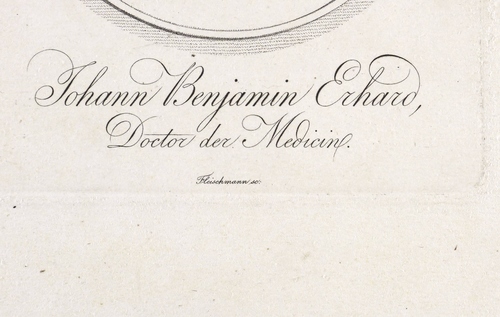 Johann Benjamin Erhard,
Doctor der Medicin.
Fleischmann sc.